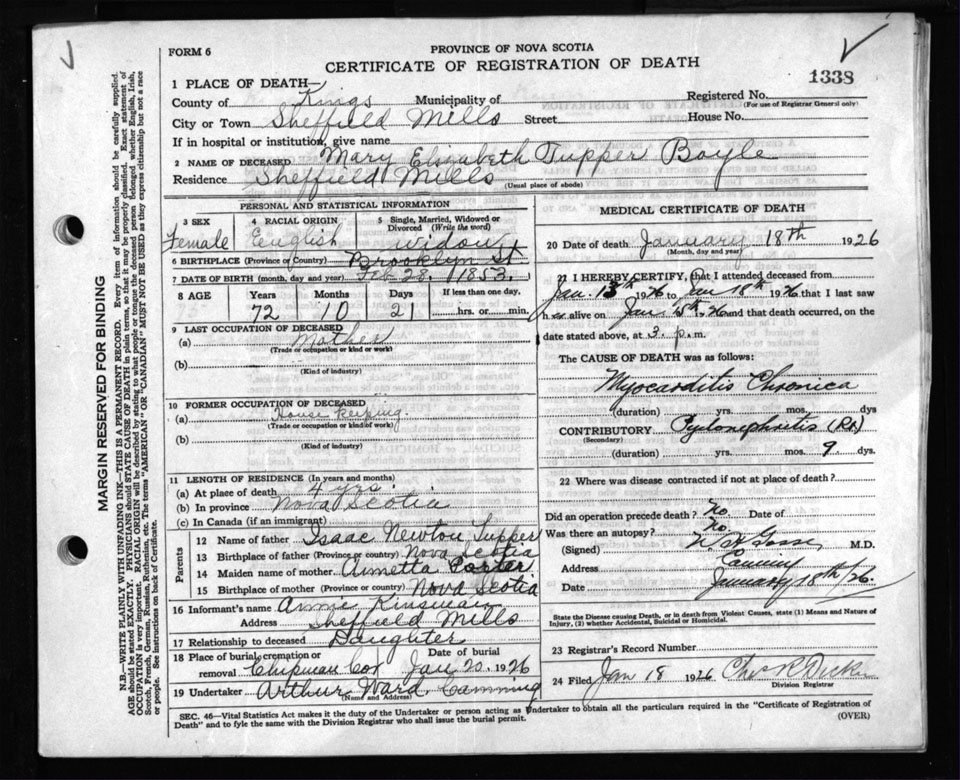 FORM 6
PROVINCE OF NOVA SCOTIA
CERTIFICATE OF REGISTRATION OF DEATH
1338
1 PLACE OF DEATH—
County of Kings Municipality of Registered No.
(For use of Registrar General only)
City or Town Sheffield Mills Street House No.
If in hospital or institution, give name
2 NAME OF DECEASED Mary Elizabeth Tupper Boyle
Residence Sheffield Mills
(Usual place of abode)
PERSONAL AND STATISTICAL INFORMATION
3 SEX 4 RACIAL ORIGIN 5 Single, Married, Widowed or Divorced (Write the word)
Female English widow
6 BIRTHPLACE (Province or Country) Brooklyn St
7 DATE OF BIRTH (month, day and year) Feb 28. 1853.
8 AGE Years Months Days If less than one day,
72 10 21 hrs. or min.
9 LAST OCCUPATION OF DECEASED
(a) Mother
(Trade or occupation or kind or work)
(b)
(Kind of industry)
10 FORMER OCCUPATION OF DECEASED
(a) House keeping.
(Trade or occupation or kind of work)
(b)
(Kind of industry)
11 LENGTH OF RESIDENCE (In years and months)
(a) At place of death 4 yrs.
(b) In province Nova Scotia
(c) In Canada (if an immigrant)
Parents
12 Name of father Isaac Newton Tupper
13 Birthplace of father (Province or country) Nova Scotia
14 Maiden name of mother Annetta
15 Birthplace of mother (Province or country) Nova Scotia
16 Informant's name Annie Kinsman
Address Sheffield Mills
17 Relationship to deceased Daughter
18 Place of burial, cremation or removal Chipman Cor Date of burial Jan 20. 1926
19 Undertaker Arthur Ward Canning
(Name and Address)
MEDICAL CERTIFICATE OF DEATH
20 Date of death January 18th 1926
(Month, day and year)
21 I HEREBY CERTIFY, that I attended deceased from
Jan. 13th 1926 to Jan 18th 1926 that I last saw
her alive on Jan 15th. 26 and that death occurred, on the
date stated above, at 3 p. m.
The CAUSE OF DEATH was as follows:
Myocarditis Chronica
(duration) yrs. mos. dys
CONTRIBUTORY Pyelonephritis (Rt)
(Secondary)
(duration) yrs. mos. 9. dys.
22 Where was disease contracted if not at place of death?
Did an operation precede death? No Date of
Was there an autopsy? No.
(Signed) M.D.
Address Canning
Date January 18th/26.
State the Disease causing Death, or in death from Violent Causes, state (1) Means and Nature of
Injury, (2) whether Accidental, Suicidal or Homicidal.
23 Registrar's Record Number
24 Filed Jan 18 1926
Division Registrar
SEC. 46—Vital Statistics Act makes it the duty of the Undertaker or person acting as Undertaker to obtain all the particulars required in the "Certificate of Registration of
Death" and to fyle the same with the Division Registrar who shall issue the burial permit.
(OVER)
MARGIN RESERVED FOR BINDING
N.B.—WRITE PLAINLY WITH UNFADING INK—THIS IS A PERMANENT RECORD. Every item of information should be carefully supplied.
AGE should be stated EXACTLY. PHYSICIANS should STATE CAUSE OF DEATH in plain terms, so that it may be properly classified. Exact statement of
OCCUPATION is very important. RACIAL ORIGIN will be described by stating to what people or tongue the deceased person belonged whether English, Irish,
Scotch, French, German, Russian, Ruthenian, etc. The terms "AMERICAN" OR "CANADIAN" MUST NOT BE USED as they express citizenship but not a race
or people. See instructions on back of Certificate.